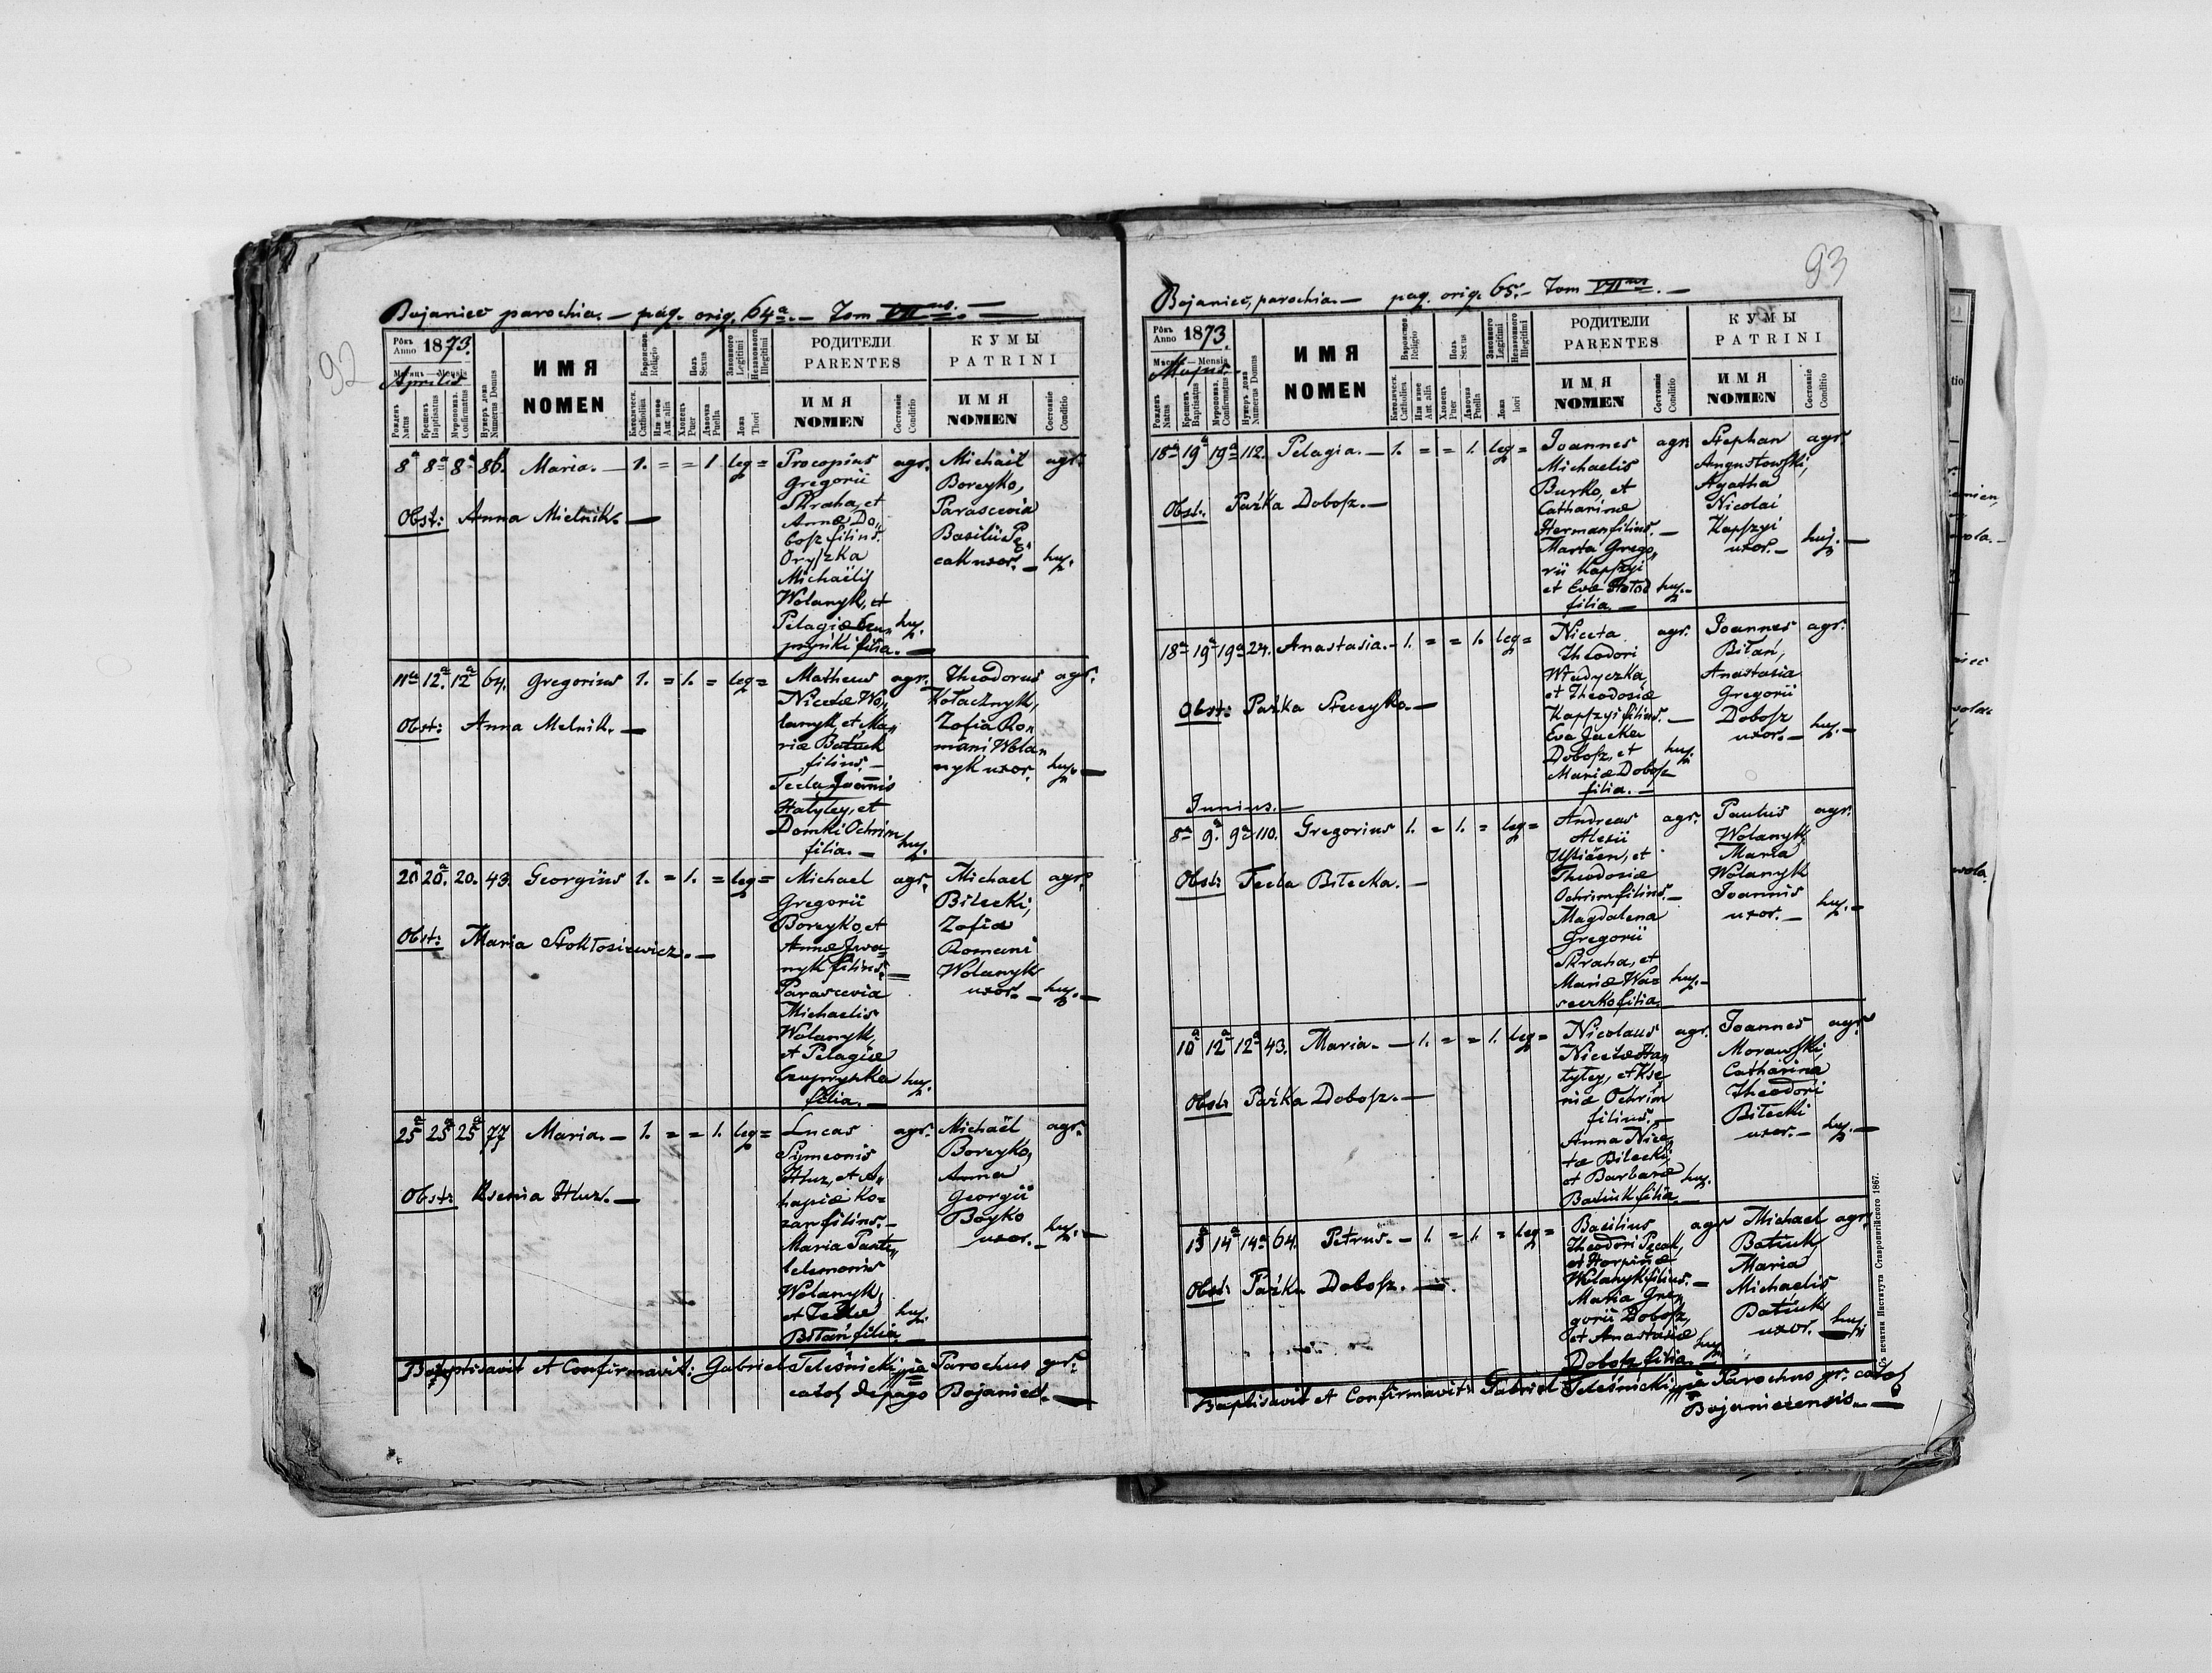 92
Bojaniec parochia. — pag. orig. 64ª. — Tom VII
Рôкъ Anno 1873.
Мѣсяцъ — Mensis
Aprilis
Рожденъ Natus
Крещенъ Baptisatus
Мѵропомаз. Confirmatus
Нумеръ дома Numerus Domus
ИМЯ
NOMEN
Religio
Католическ. Catholica
Или инне Aut alia
Полъ Sexus
Хлопець Puer
Дѣвочка Puella
Законного Legitimi
Незаконного Illegitimi
Ложа Thori
РОДИТЕЛИ
PARENTES
ИМЯ
NOMEN
Состоянiе Conditio
КУМЫ
PATRINI
ИМЯ
NOMEN
Состоянiе Conditio
8ª 8ª 8ª 86. Maria. — 1. = = 1 leg =
Obst: Anna Mielnik. —
Procopius agr.
Gregorii
Skraha, et
Annæ Do„
bosz filius.
Oryszka
Michaëlis
Wolanyk, et
Pelagiæ Czu„ huj.
pryńki filia. —
Michaël agr.
Boreyko,
Parascevia
Basilii Pę„
cak uxor. — huj.
11ª 12ª 12ª 64. Gregorius 1. = 1. = leg =
Obst: Anna Melnik. —
Matheus agr.
Nicetæ Wo„
lanyk, et Ma„
riæ Batiuk
filius. —
Tecla Joannis
Hatyley, et
Domki Ochrim
filia. — huj.
Theodorus agr.
Kołacznyk,
Zofia Ro„
mani Wola„
nyk uxor. huj. —
20 20ª. 20. 43. Georgius 1. = 1. = leg =
Obst: Maria Stokłosiewicz. —
Michael agr.
Gregorii
Boreyko, et
Annæ Iwa„
nyk filius. —
Parascevia
Michaelis
Wolanyk,
et Pelagiæ
Czupryńka huj.
filia. —
Michael agr.
Bilecki,
Zofia
Romani
Wolanyk
uxor. — huj. —
25ª 25ª 25ª 77 Maria. — 1. = = 1. leg =
Obst: Ksenia Hluz. —
Lucas agr.
Symeonis
Hluz, et A„
hapiæ Ko„
zan filius. —
Maria Pante„
leemonis
Wolanyk,
et Teclæ huj.
Biłan filia —
Michaël agr.
Boreyko,
Anna
Georgii
Boyko
uxor. — huj. —
Baptisavit et Confirmavit: Gabriel Teleśnicki Parochus gr.
cath de pago Bojaniec. —
93
Bojaniec, parochia. — pag. orig. 65. — Tom VII
Рôкъ Anno 1873.
Мѣсяцъ — Mensis
Majus.
Рожденъ Natus
Крещенъ Baptisatus
Мѵропомаз. Confirmatus
Нумеръ дома Numerus Domus
ИМЯ
NOMEN
Religio
Католическ. Catholica
Или инне Aut alia
Полъ Sexus
Хлопець Puer
Дѣвочка Puella
Законного Legitimi
Незаконного Illegitimi
Ложа hori
РОДИТЕЛИ
PARENTES
ИМЯ
NOMEN
Состоянiе Conditio
КУМЫ
PATRINI
ИМЯ
NOMEN
Состоянiе Conditio
18ª 19ª 19ª 112. Pelagia. — 1. = = 1. leg =
Obst. Pażka Dobosz. —
Joannes agr.
Michaelis
Burko, et
Catharinæ
Herman filius. —
Marta Grego„
rii Kapszyi
et Evæ huj. —
filia. —
Stephan agr.
Angustowski,
Agatha
Nicolai
Kapszyi
uxor. — huj. —
18ª 19ª 19ª 24. Anastasia. — 1. = = 1. leg =
Obst: Pażka Steceyko. —
Niceta agr.
Theodori
Władyczka
et Theodosiæ
Kapszyi filius. —
Eva Jacka
Dobosz, et huj.
Mariæ Dobosz
filia. —
Joannes agr.
Biłan,
Anastasia
Gregorii
Dobosz
uxor. — huj. —
Junius. —
8ª 9ª. 9ª 110. Gregorius 1. = 1. = leg =
Obst: Tecla Biłecka. —
Andreas agr.
Alexii
et
Theodosiæ
Ochrim filius. —
Magdalena
Gregorii
Skraha, et
Mariæ Wa„ huj. —
seczko filia.
Paulus agr.
Wolanyk
Maria
Wolanyk
Joannis
uxor. — huj. —
10ª 12ª 12ª 43. Maria. — 1. = = 1. leg =
Obst: Pażka Dobosz. —
Nicolaus agr.
Nicetæ Ha„
tyley, et Kse
niæ Ochrim
filius. —
Anna Nice„
tæ Bilecki,
et Barbaræ huj.
Batiuk filia. —
Joannes agr.
Morawski,
Catharina
Theodori
Bilecki
uxor. — huj. —
13ª 14ª 14ª 64. Petrus. — 1. = 1. = leg =
Obst: Pażka Dobosz. —
Basilius agr
Theodori Pęcak,
et Horpinæ
Wolanyk filius. —
Maria Gre„
gorii Dobosz,
et Anastasiæ huj.
Dobosz filia. —
Michael agr.
Batiuk
Maria
Michaelis
Batiuk
uxor. — huj.
Baptisavit et Confirmavit: Gabriel Teleśnicki Parochus gr. cath
Bojaniecensis. —
Съ печатни Института Ставропигiйского 1867.